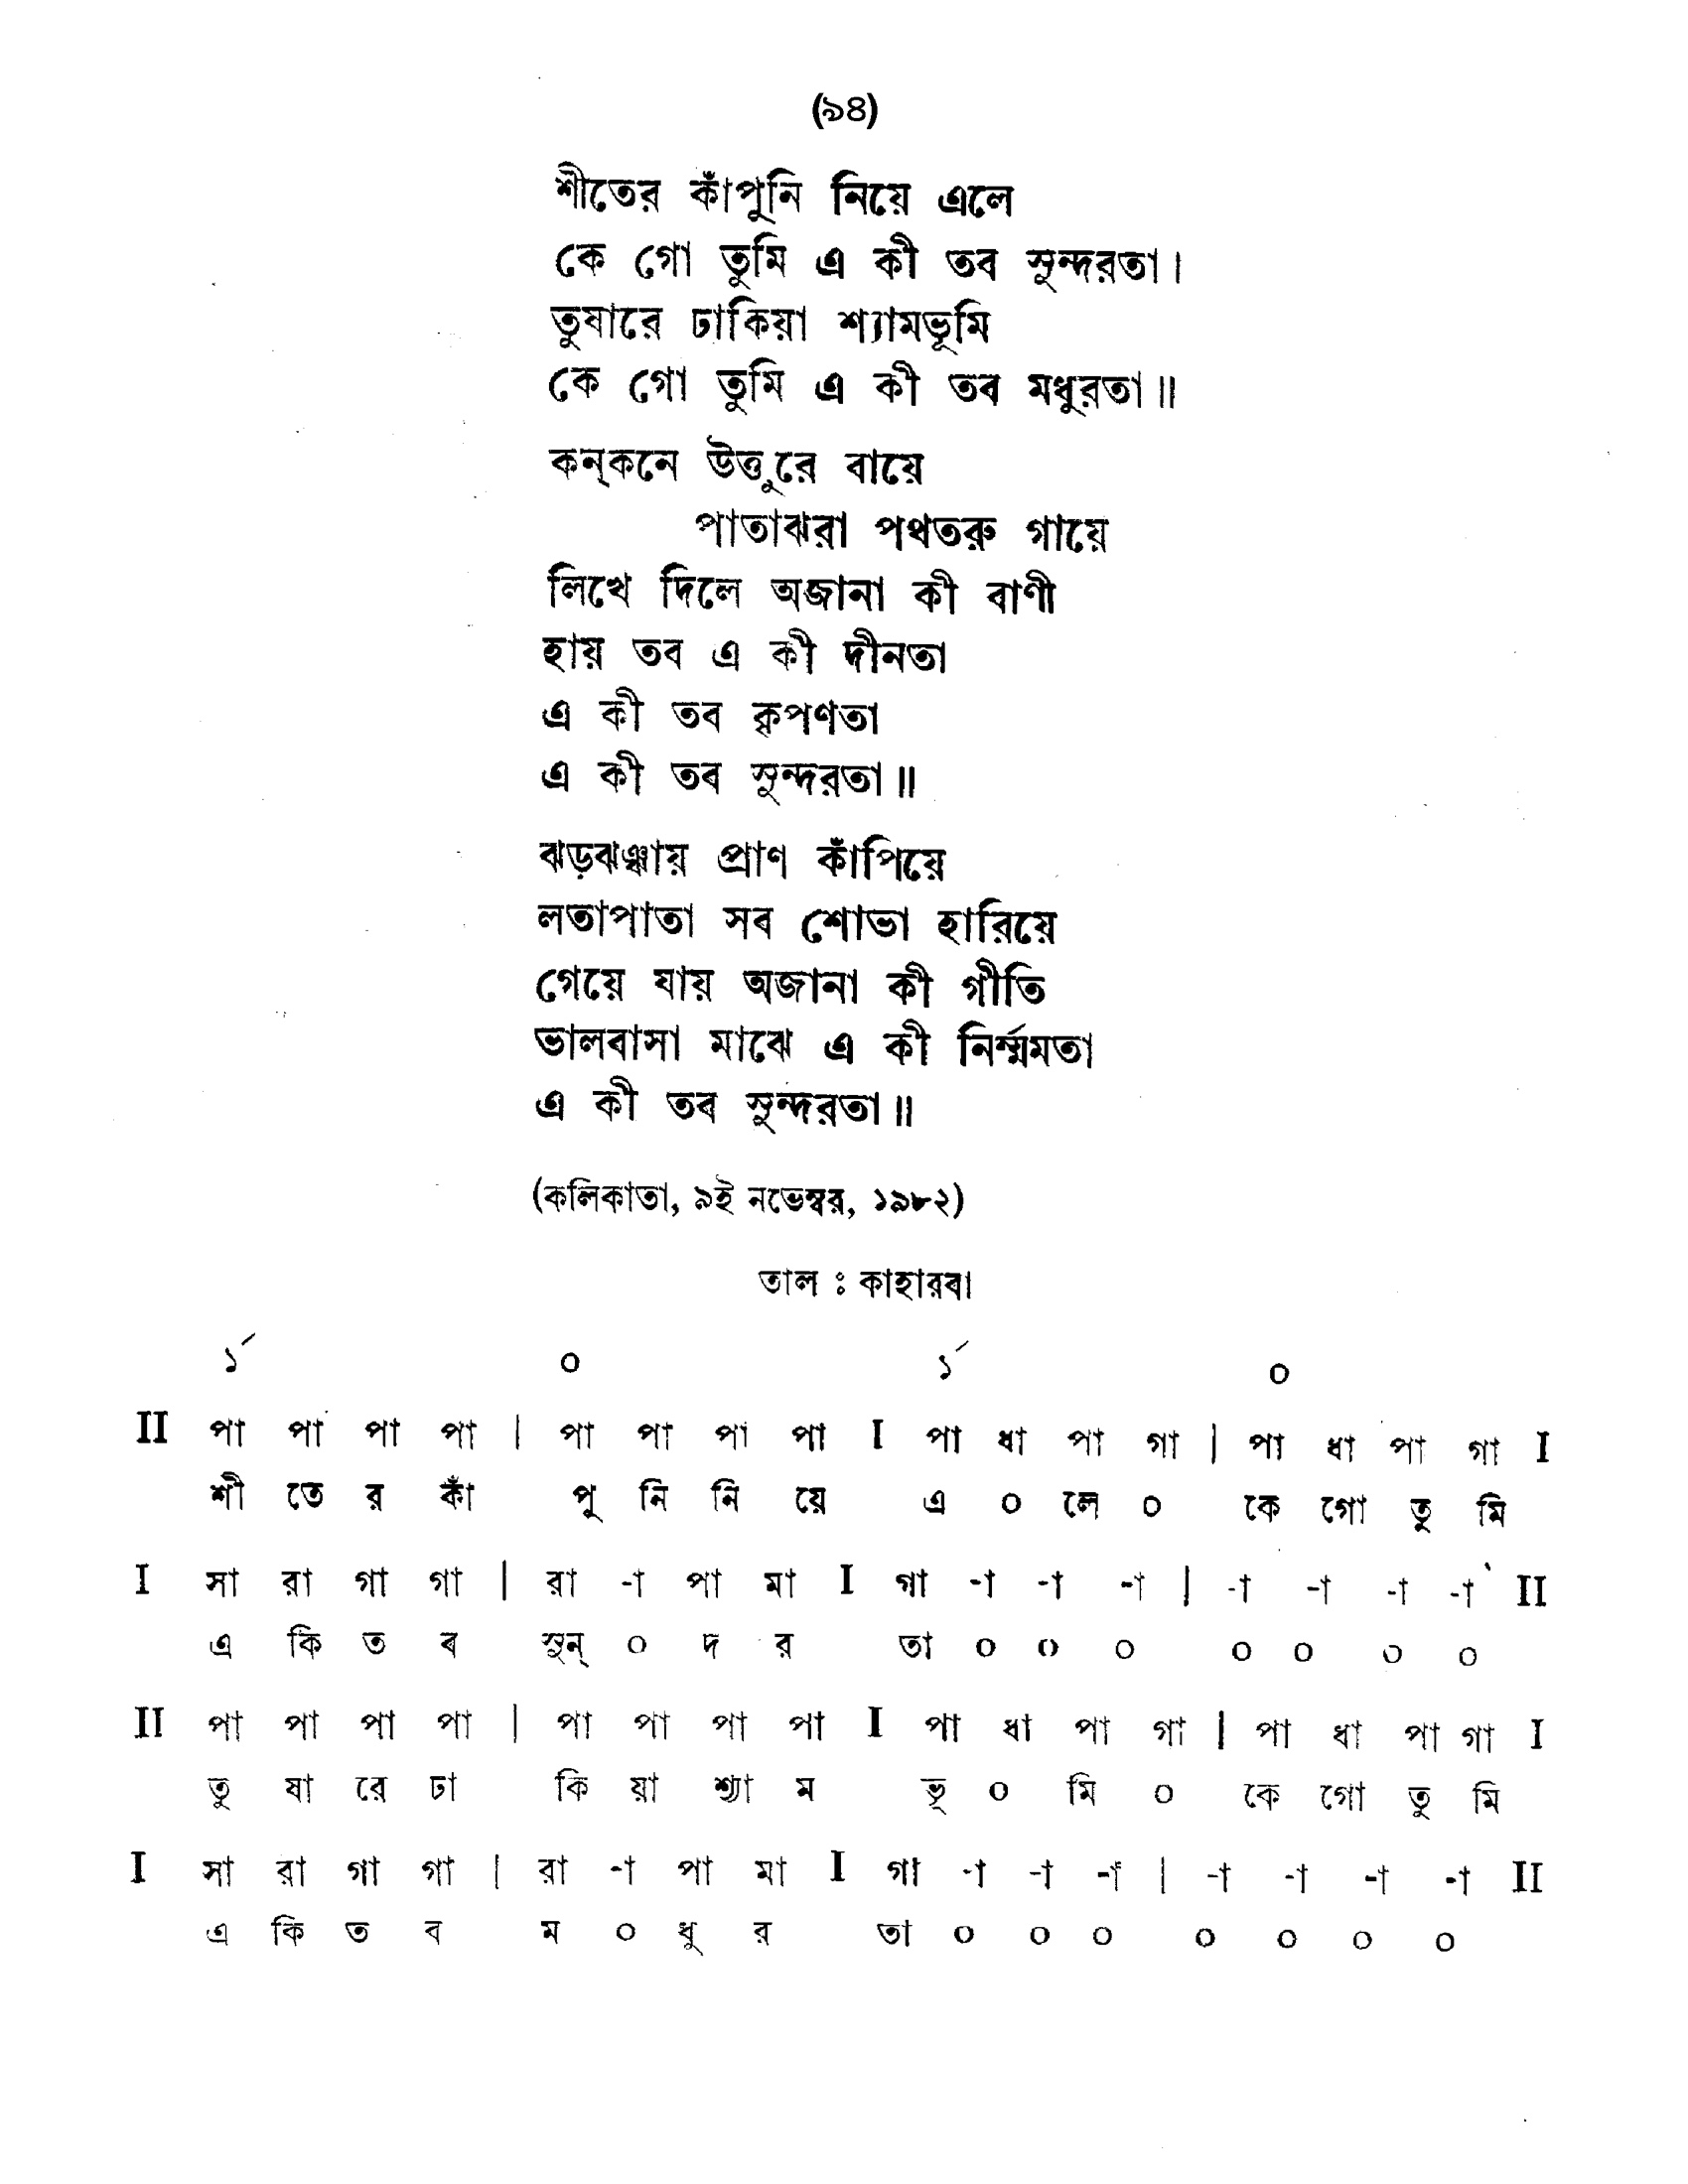 (৯৪)
শীতের কাঁপুনি নিয়ে এলে
কে গো তুমি এ কী তব সুন্দরতা।
তুষারে ঢাকিয়া শ্যামভূমি
কে গো তুমি এ কী তব মধুরতা॥
কন্‌কনে উত্তুরে বায়ে
পাতাঝরা পথতরু গায়ে
লিখে দিলে অজানা কী বাণী
হায় তব এ কী দীনতা
এ কী তব কৃপণতা
এ কী তব সুন্দরতা॥
ঝড়ঝঞ্ঝায় প্রাণ কাঁপিয়ে
লতাপাতা সব শোভা হারিয়ে
গেয়ে যায় অজানা কী গীতি
ভালবাসা মাঝে এ কী নির্ম্মমতা
এ কী তব সুন্দরতা॥
(কলিকাতা, ৯ই নভেম্বর, ১৯৮২)
তাল ঃ কাহারবা
১´ ০ ১´ ০
II পা পা পা পা | পা পা পা পা I পা ধা পা গা | পা ধা পা গা I
শী তে র কাঁ পু নি নি য়ে এ ০ লে ০ কে গো তু মি
I সা রা গা গা | রা -া পা মা I গা -া -া -া | -া -া -া -া II
এ কি ত ব সুন্ ০ দ র তা ০ ০ ০ ০ ০ ০ ০
II পা পা পা পা | পা পা পা পা I পা ধা পা গা | পা ধা পা গা I
তু ষা রে ঢা কি য়া শ্যা ম ভূ ০ মি ০ কে গো তু মি
I সা রা গা গা | রা -া পা মা I গা -া -া -া | -া -া -া -া II
এ কি ত ব ম ০ ধু র তা ০ ০ ০ ০ ০ ০ ০